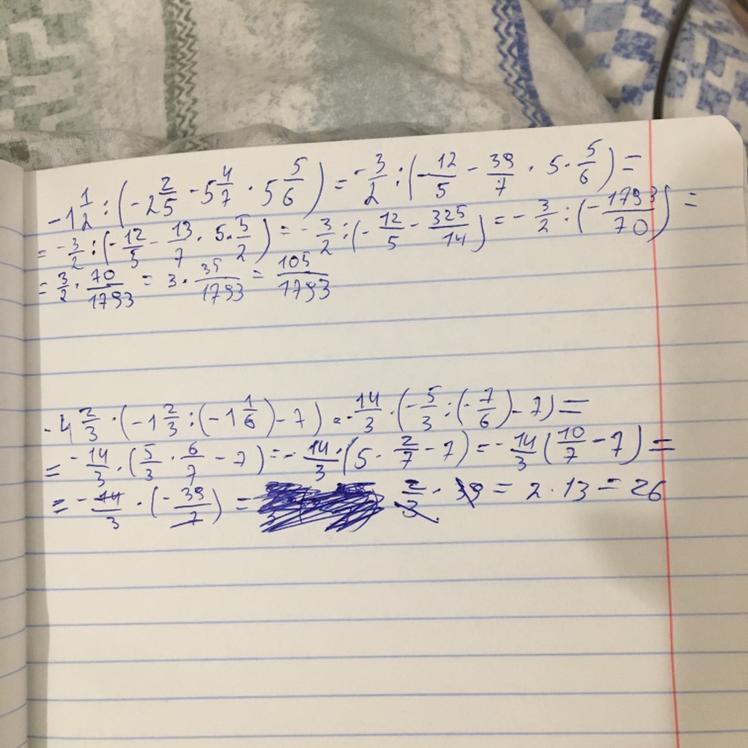 -1 1/2 : (-2 2/5 - 5 4/7 · 5 5/6) = -3/2 : (-12/5 - 39/7 · 5 · 5/6) =
= -3/2 : (-12/5 - 13/7 · 5 · 5/2) = -3/2 : (-12/5 - 325/14) = -3/2 : (-1793/70) =
= 3/2 · 70/1793 = 3 · 35/1793 = 105/1793
-4 2/3 · (-1 2/3 : (-1 1/6) - 7) = -14/3 · (-5/3 : (-7/6) - 7) =
= -14/3 · (5/3 · 6/7 - 7) = -14/3 · (5 · 2/7 - 7) = -14/3 (10/7 - 7) =
= -14/3 · (-39/7) = 2/3 · 39 = 2 · 13 = 26